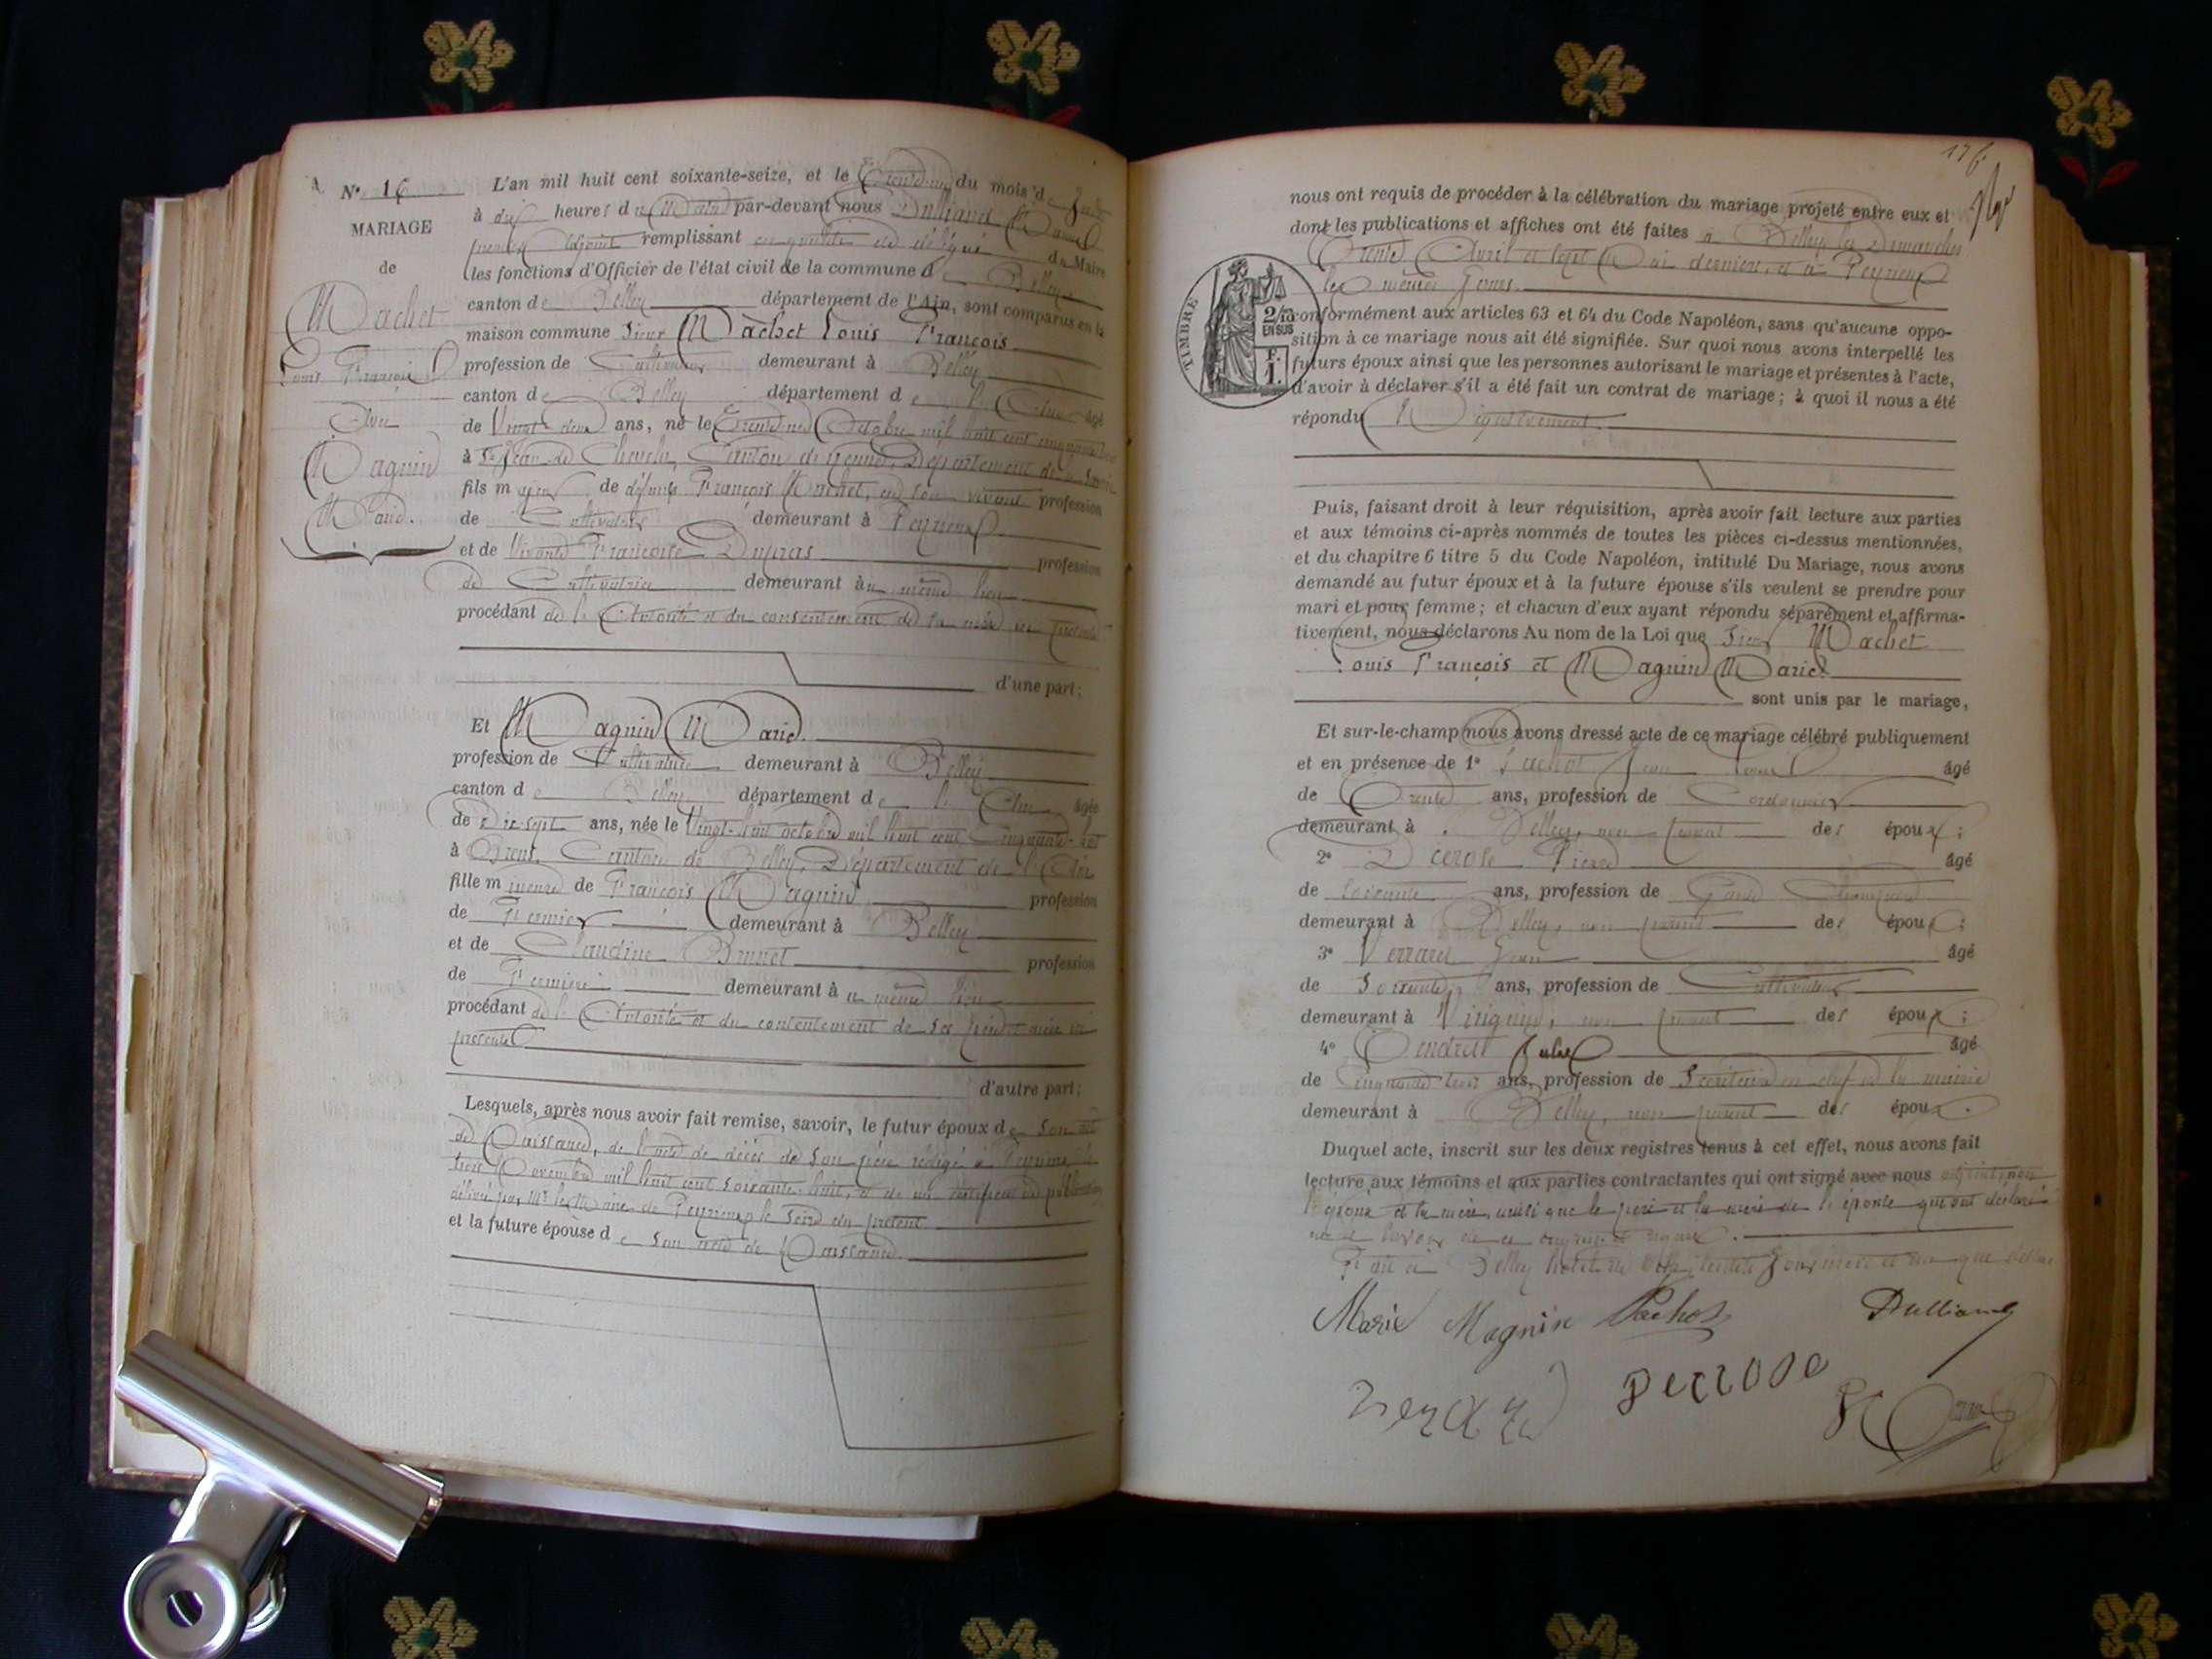 N° 16
MARIAGE
de
Machet
Louis François
Avec
Magnin
Marie.
L'an mil huit cent soixante-seize, et le du mois de
à dix heures du Matin par-devant nous Dulliand
premier Adjoint remplissant en qualité de délégué du Maire
les fonctions d'Officier de l'état civil de la commune de Belley
canton de Belley département de l'Ain, sont comparus en la
maison commune Sieur Machet Louis François
profession de Cultivateur demeurant à Belley
canton de Belley département de l'Ain âgé
de Vingt deux ans, né le Octobre mil huit cent cinquante
à St Jean de Chevelu, Canton de Yenne, Département de la Savoie
fils majeur de défunt François Machet, en son vivant profession
de Cultivateur demeurant à Peyrieux
et de Vivante Françoise Dupras profession
de Cultivatrice demeurant au même lieu
procédant de l'Autorité et du consentement de sa mère ici présente
d'une part;
Et Magnin Marie.
profession de Cultivatrice demeurant à Belley
canton de Belley département de l'Ain âgée
de Dix-sept ans, née le Vingt-huit octobre mil huit cent Cinquante-huit
à Brens, Canton de Belley, Département de l'Ain
fille mineure de François Magnin profession
de Fermier demeurant à Belley
et de Claudine Brunet profession
de Fermière demeurant au même lieu
procédant de l'Autorité et du consentement de ses père et mère ici
présents
d'autre part;
Lesquels, après nous avoir fait remise, savoir, le futur époux de son acte
de Naissance, de l'acte de décès de son père rédigé à Peyrieux le
trois Novembre mil huit cent soixante-huit, et de un certificat de publication
délivré par Mr le Maire de Peyrieux le Seize du présent
et la future épouse de son acte de Naissance.
176
nous ont requis de procéder à la célébration du mariage projeté entre eux et
dont les publications et affiches ont été faites à Belley les Dimanches
Trente Avril et sept Mai derniers, et à Peyrieux
les mêmes Jours.
TIMBRE
2/10
EN SUS
F.
1.
conformément aux articles 63 et 64 du Code Napoléon, sans qu'aucune oppo-
sition à ce mariage nous ait été signifiée. Sur quoi nous avons interpellé les
futurs époux ainsi que les personnes autorisant le mariage et présentes à l'acte,
d'avoir à déclarer s'il a été fait un contrat de mariage; à quoi il nous a été
répondu Négativement.
Puis, faisant droit à leur réquisition, après avoir fait lecture aux parties
et aux témoins ci-après nommés de toutes les pièces ci-dessus mentionnées,
et du chapitre 6 titre 5 du Code Napoléon, intitulé Du Mariage, nous avons
demandé au futur époux et à la future épouse s'ils veulent se prendre pour
mari et pour femme; et chacun d'eux ayant répondu séparément et affirma-
tivement, nous déclarons Au nom de la Loi que Sieur Machet
Louis François et Magnin Marie
sont unis par le mariage,
Et sur-le-champ nous avons dressé acte de ce mariage célébré publiquement
et en présence de 1° Jean âgé
de Trente ans, profession de Cordonnier
demeurant à Belley, non parent des époux;
2° Pierre âgé
de soixante ans, profession de Garde Champêtre
demeurant à Belley, non parent des époux;
3° Verrard Jean âgé
de Soixante ans, profession de Cultivateur
demeurant à Virignin, non parent des époux;
4° Jules âgé
de Cinquante trois ans, profession de Secrétaire en chef de la mairie
demeurant à Belley, non parent des époux.
Duquel acte, inscrit sur les deux registres tenus à cet effet, nous avons fait
lecture aux témoins et aux parties contractantes qui ont signé avec nous adjoint, non
l'époux et sa mère, ainsi que le père et la mère de l'épouse qui ont déclaré
ne le savoir de ce enquis et requis.
Fait à Belley hôtel de ville, lesdits Jour mois et an que dessus
Marie Magnin Pachot Dulliand